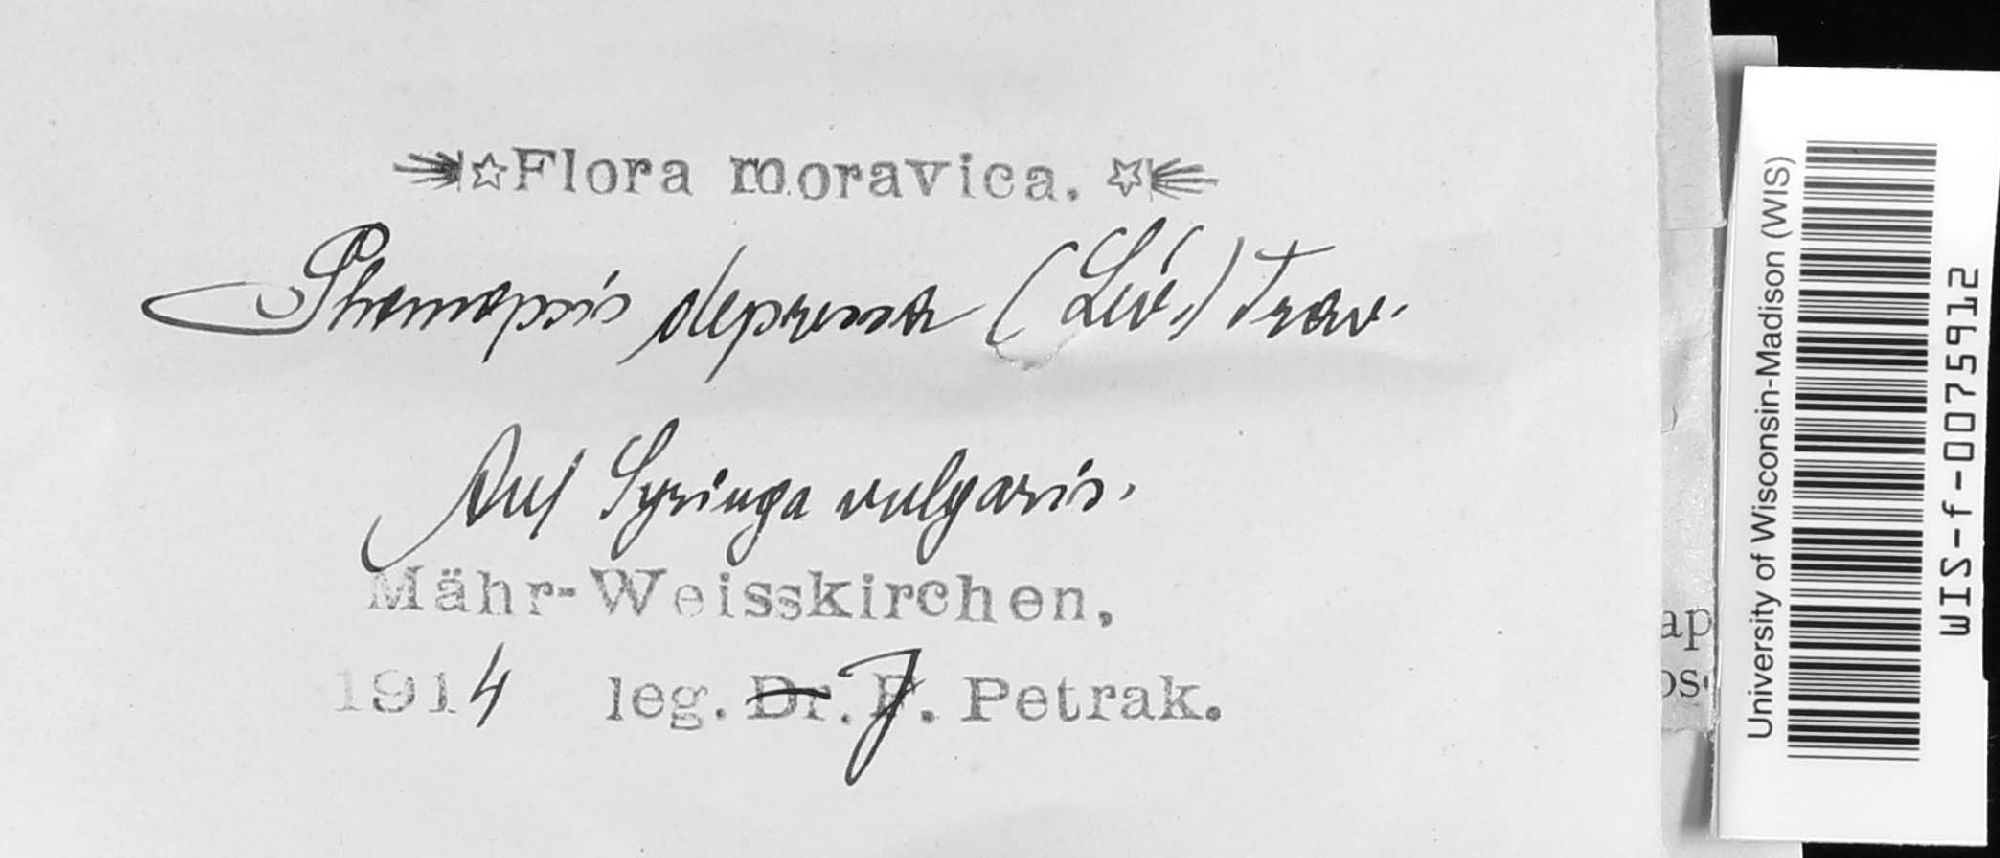 Flora moravica.
Phomopsis depressa (Lév.) Trav.
Auf Syringa vulgaris.
Mähr-Weisskirchen,
1914 leg. Dr. J. Petrak.
University of Wisconsin-Madison (WIS)
WIS-f-0075912